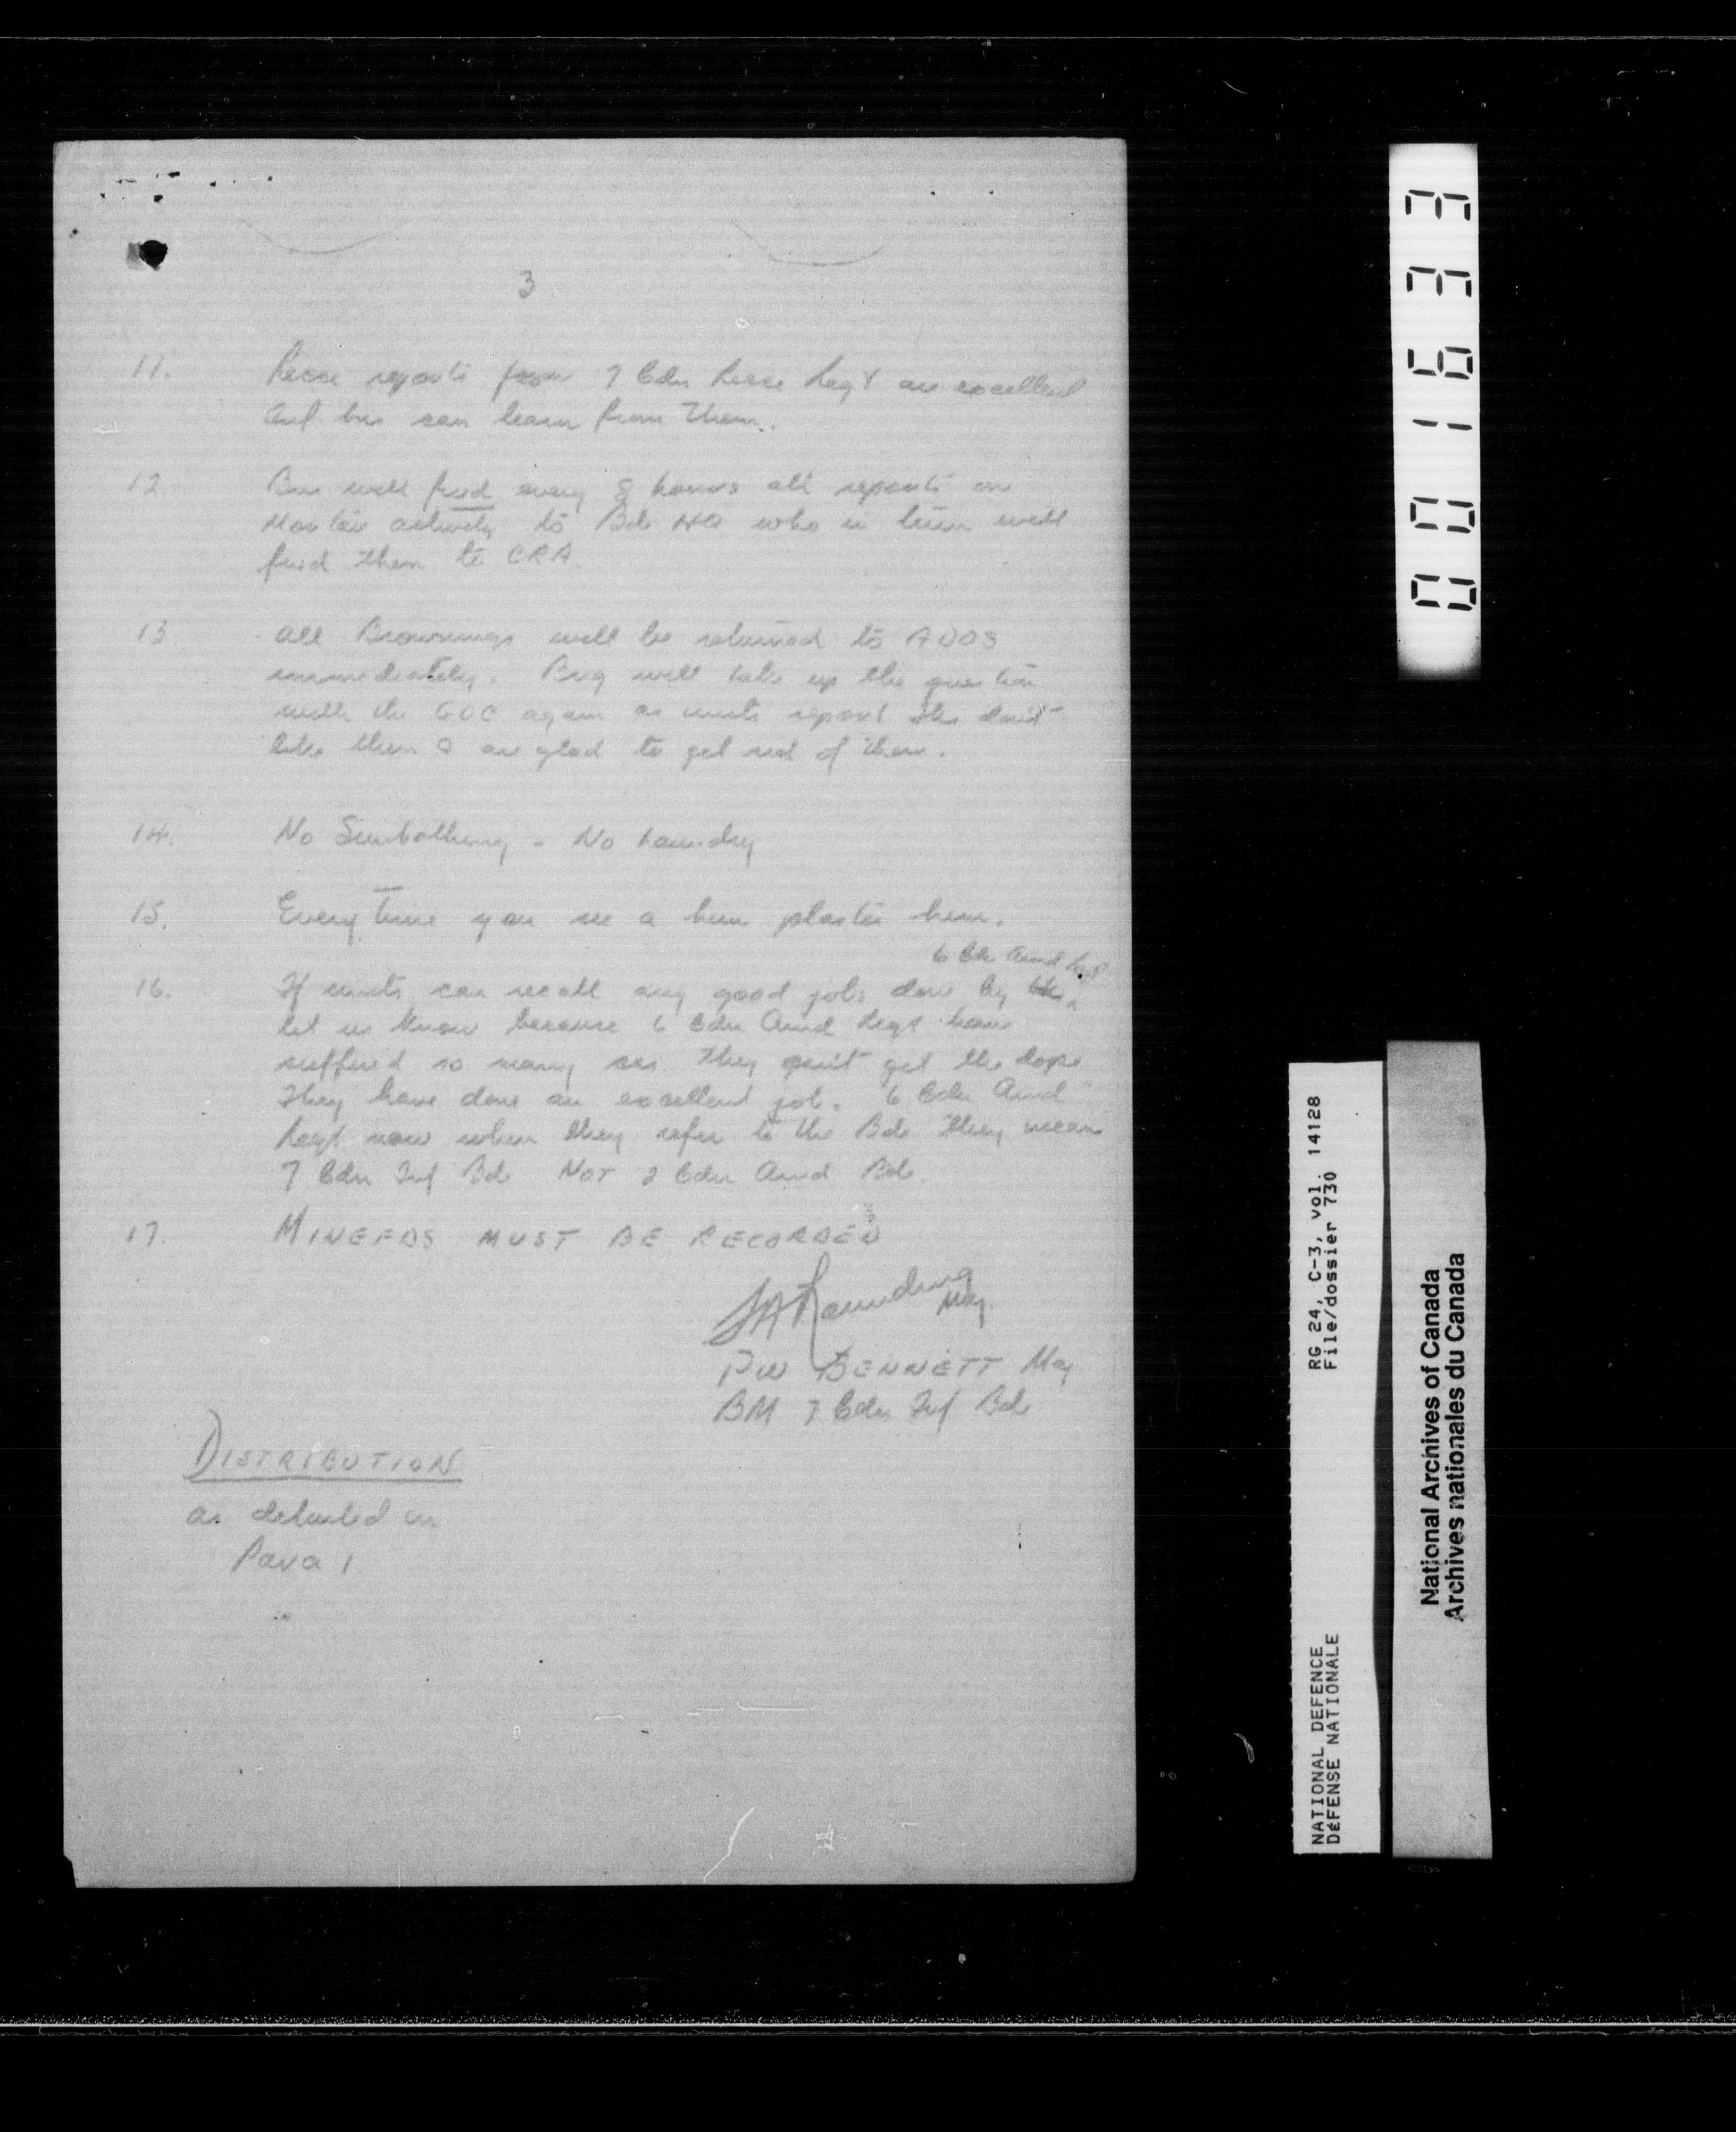 3
11. Recce reports from 7 Cdn Recce Regt are excellent
Inf bns can learn from them.
12. Bns will fwd every 8 hours all reports on
Mortar activity to Bde HQ who in turn will
fwd them to CRA.
13 All Brownings will be returned to ADOS
immediately. Brig will take up the question
with the GOC again as units report they don't
like them & are glad to get rid of them.
14. No Sunbathing - No Laundry
15. Every time you see a hun plaster him.
6 Cdn Armd Regt
16. If units can recall any good jobs done by
let us know because 6 Cdn Armd Regt have
suffered so many cas they can't get the dope
They have done an excellent job. 6 Cdn Armd
Regt now when they refer to the Bde they mean
7 Cdn Inf Bde NOT 2 Cdn Armd Bde.
17. MINEFDS MUST BE RECORDED
Maj.
PW BENNETT Maj
BM 7 Cdn Inf Bde
DISTRIBUTION
as detailed in
Para 1
0001633
RG 24, C-3, vol. 14128
File/dossier 730
NATIONAL DEFENCE
DÉFENSE NATIONALE
National Archives of Canada
Archives nationales du Canada